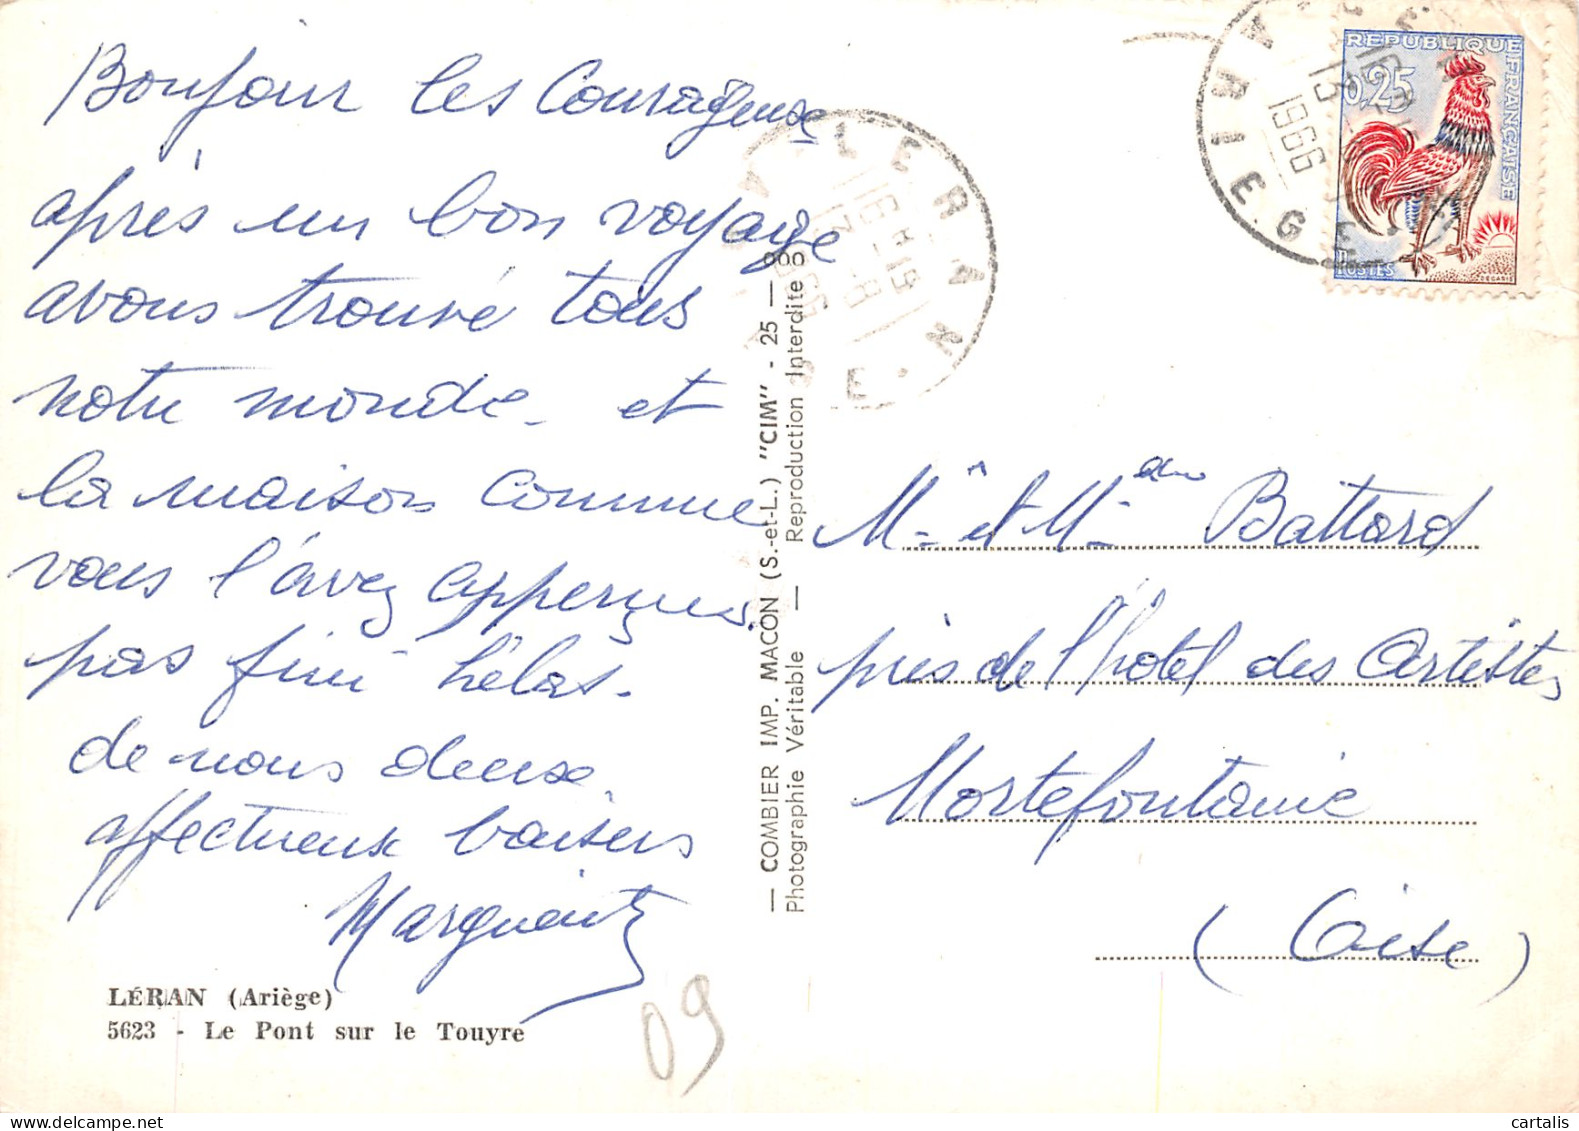 Bonjour les Courageux
après un bon voyage
avons trouvé tous
notre monde. et
la maison comme
vous l'avez apperçue.
pas fini hélas.
de nous deux.
affectueux baisers
Marguerite
LÉRAN (Ariège)
5623 - Le Pont sur le Touyre
09
— COMBIER IMP. MACON (S.-et-L.) "CIM" - 25 —
Photographie Véritable — Reproduction Interdite
LERAN
16 H-19
ARIEGE
1966
REPUBLIQUE FRANÇAISE
0,25
POSTES
DECARIS
Mr et Mme Battard
près de l'hotel des Artistes
Mortefontaine
(Oise)
cartalis
delcampe.net